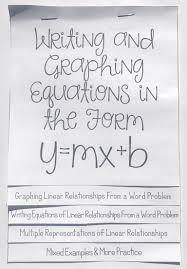 Writing and
Graphing
Equations in
the Form
y=mx+b
Graphing Linear Relationships From a Word Problem
Writing Equations of Linear Relationships From a Word Problem
Multiple Representations of Linear Relationships
Mixed Examples & More Practice